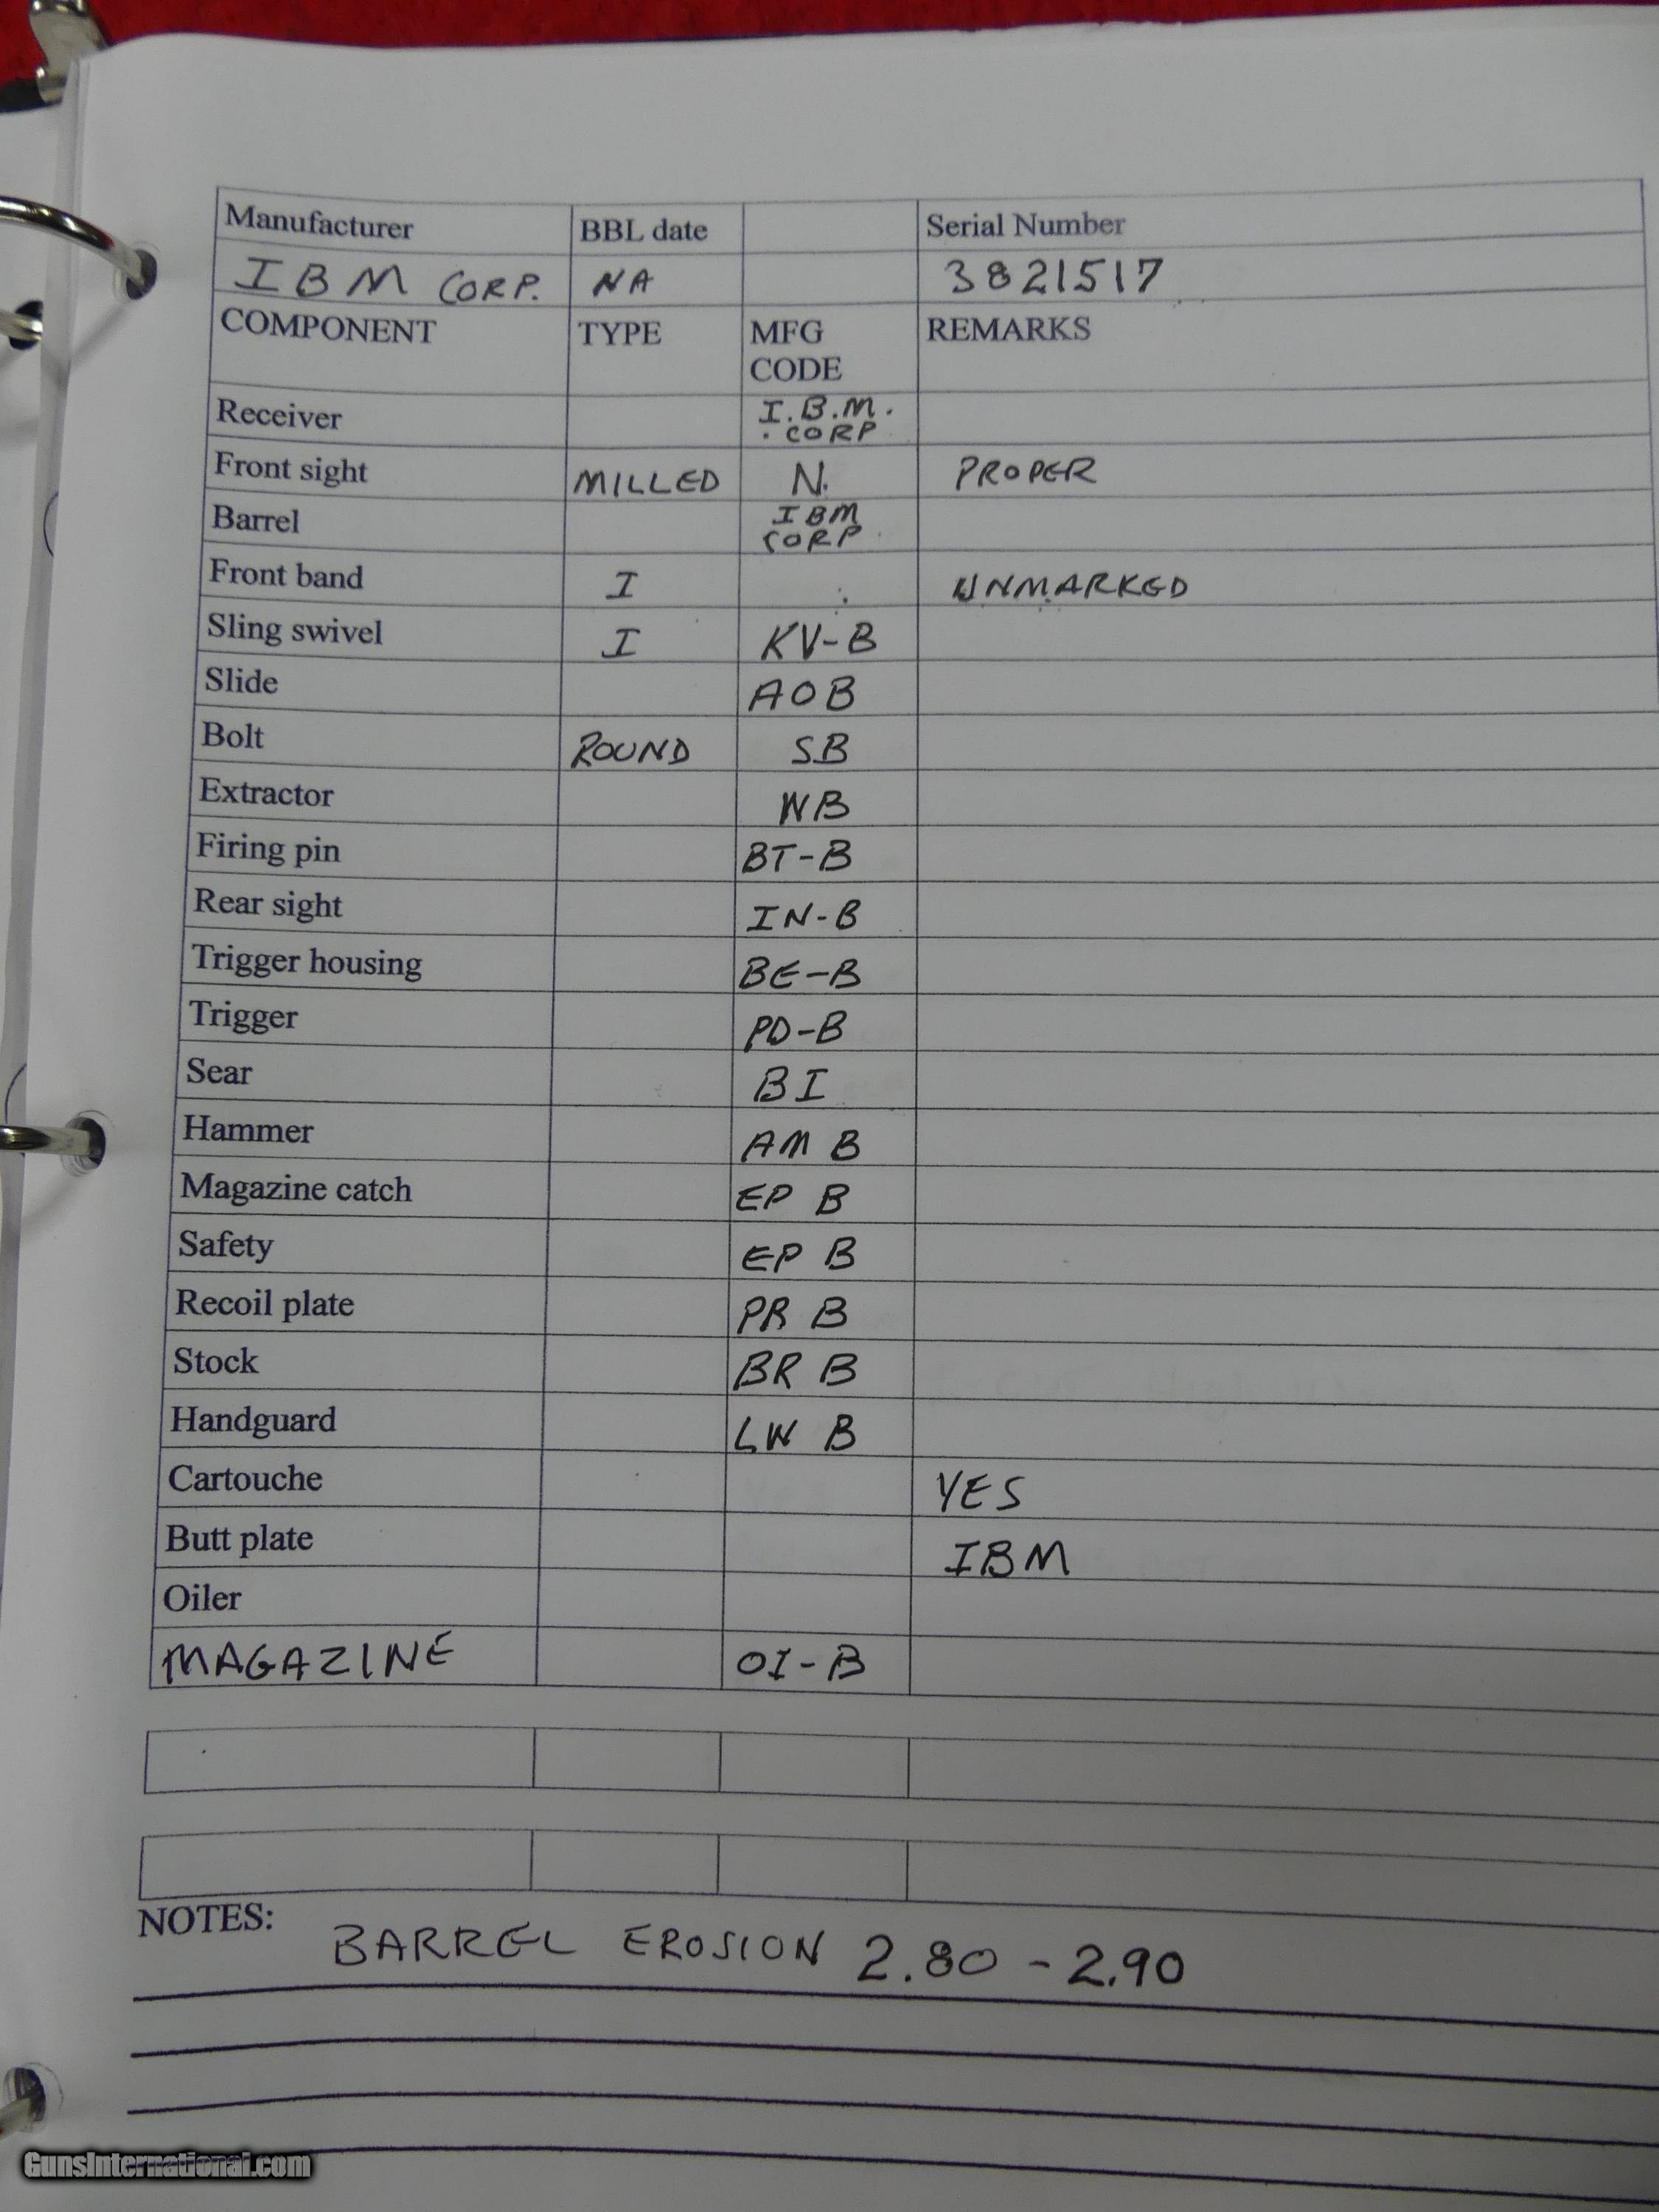 Manufacturer BBL date Serial Number
IBM CORP. NA 3821517
COMPONENT TYPE MFG CODE REMARKS
Receiver I.B.M. CORP
Front sight MILLED N. PROPER
Barrel IBM CORP
Front band I UNMARKED
Sling swivel I KV-B
Slide AOB
Bolt ROUND SB
Extractor WB
Firing pin BT-B
Rear sight IN-B
Trigger housing BE-B
Trigger PD-B
Sear BI
Hammer AM B
Magazine catch EP B
Safety EP B
Recoil plate PR B
Stock BR B
Handguard LW B
Cartouche YES
Butt plate IBM
Oiler
MAGAZINE OI-B
NOTES: BARREL EROSION 2.80 - 2.90
GunsInternational.com